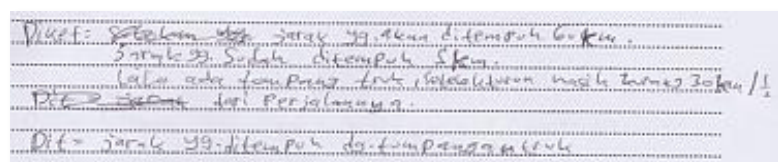 Diket: jarak yg. akan ditempuh 60 km.
jarak yg. sudah ditempuh 5 km.
Lalu ada tumpang truk, masih 30 km / 1/2
dari Perjalananya.
Dit = jarak yg. ditempuh dg. tumpangan truk